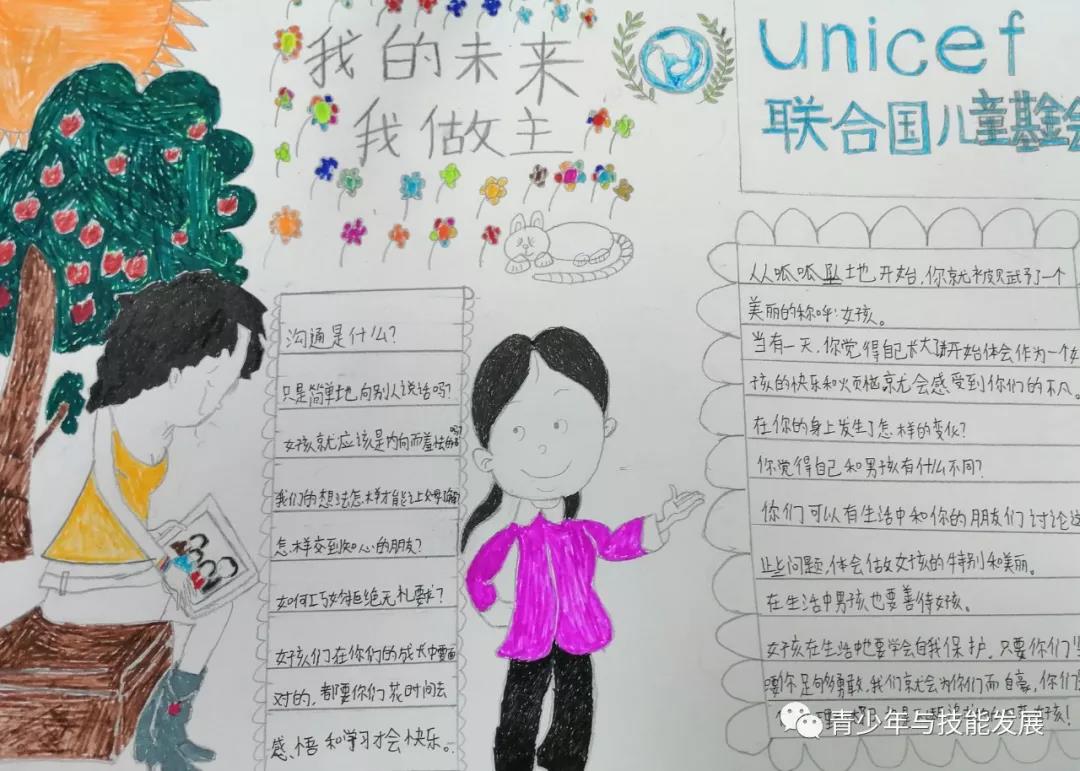 我的未来
我做主
unicef
联合国儿童基金会
沟通是什么?
只是简单地向别人说话吗?
女孩就应该是内向而羞怯的吗?
我们的想法怎样才能让父母理解
怎样交到知心的朋友?
如何巧妙拒绝无礼要求?
女孩们在你们的成长中要面
对的,都要你们花时间去
感悟和学习才会快乐。
从呱呱坠地开始,你就被赋予了一个
美丽的称呼:女孩。
当有一天,你觉得自己长大并开始体会作为一个女
孩的快乐和烦恼就会感受到你们的不凡。
在你的身上发生了怎样的变化?
你觉得自己和男孩有什么不同?
你们可以有生活中和你的朋友们讨论这
些问题,体会做女孩的特别和美丽。
在生活中男孩也要善待女孩。
女孩在生活中也要学会自我保护,只要你们
要你足够勇敢,我们就会为你们而自豪,你们
女孩!
青少年与技能发展